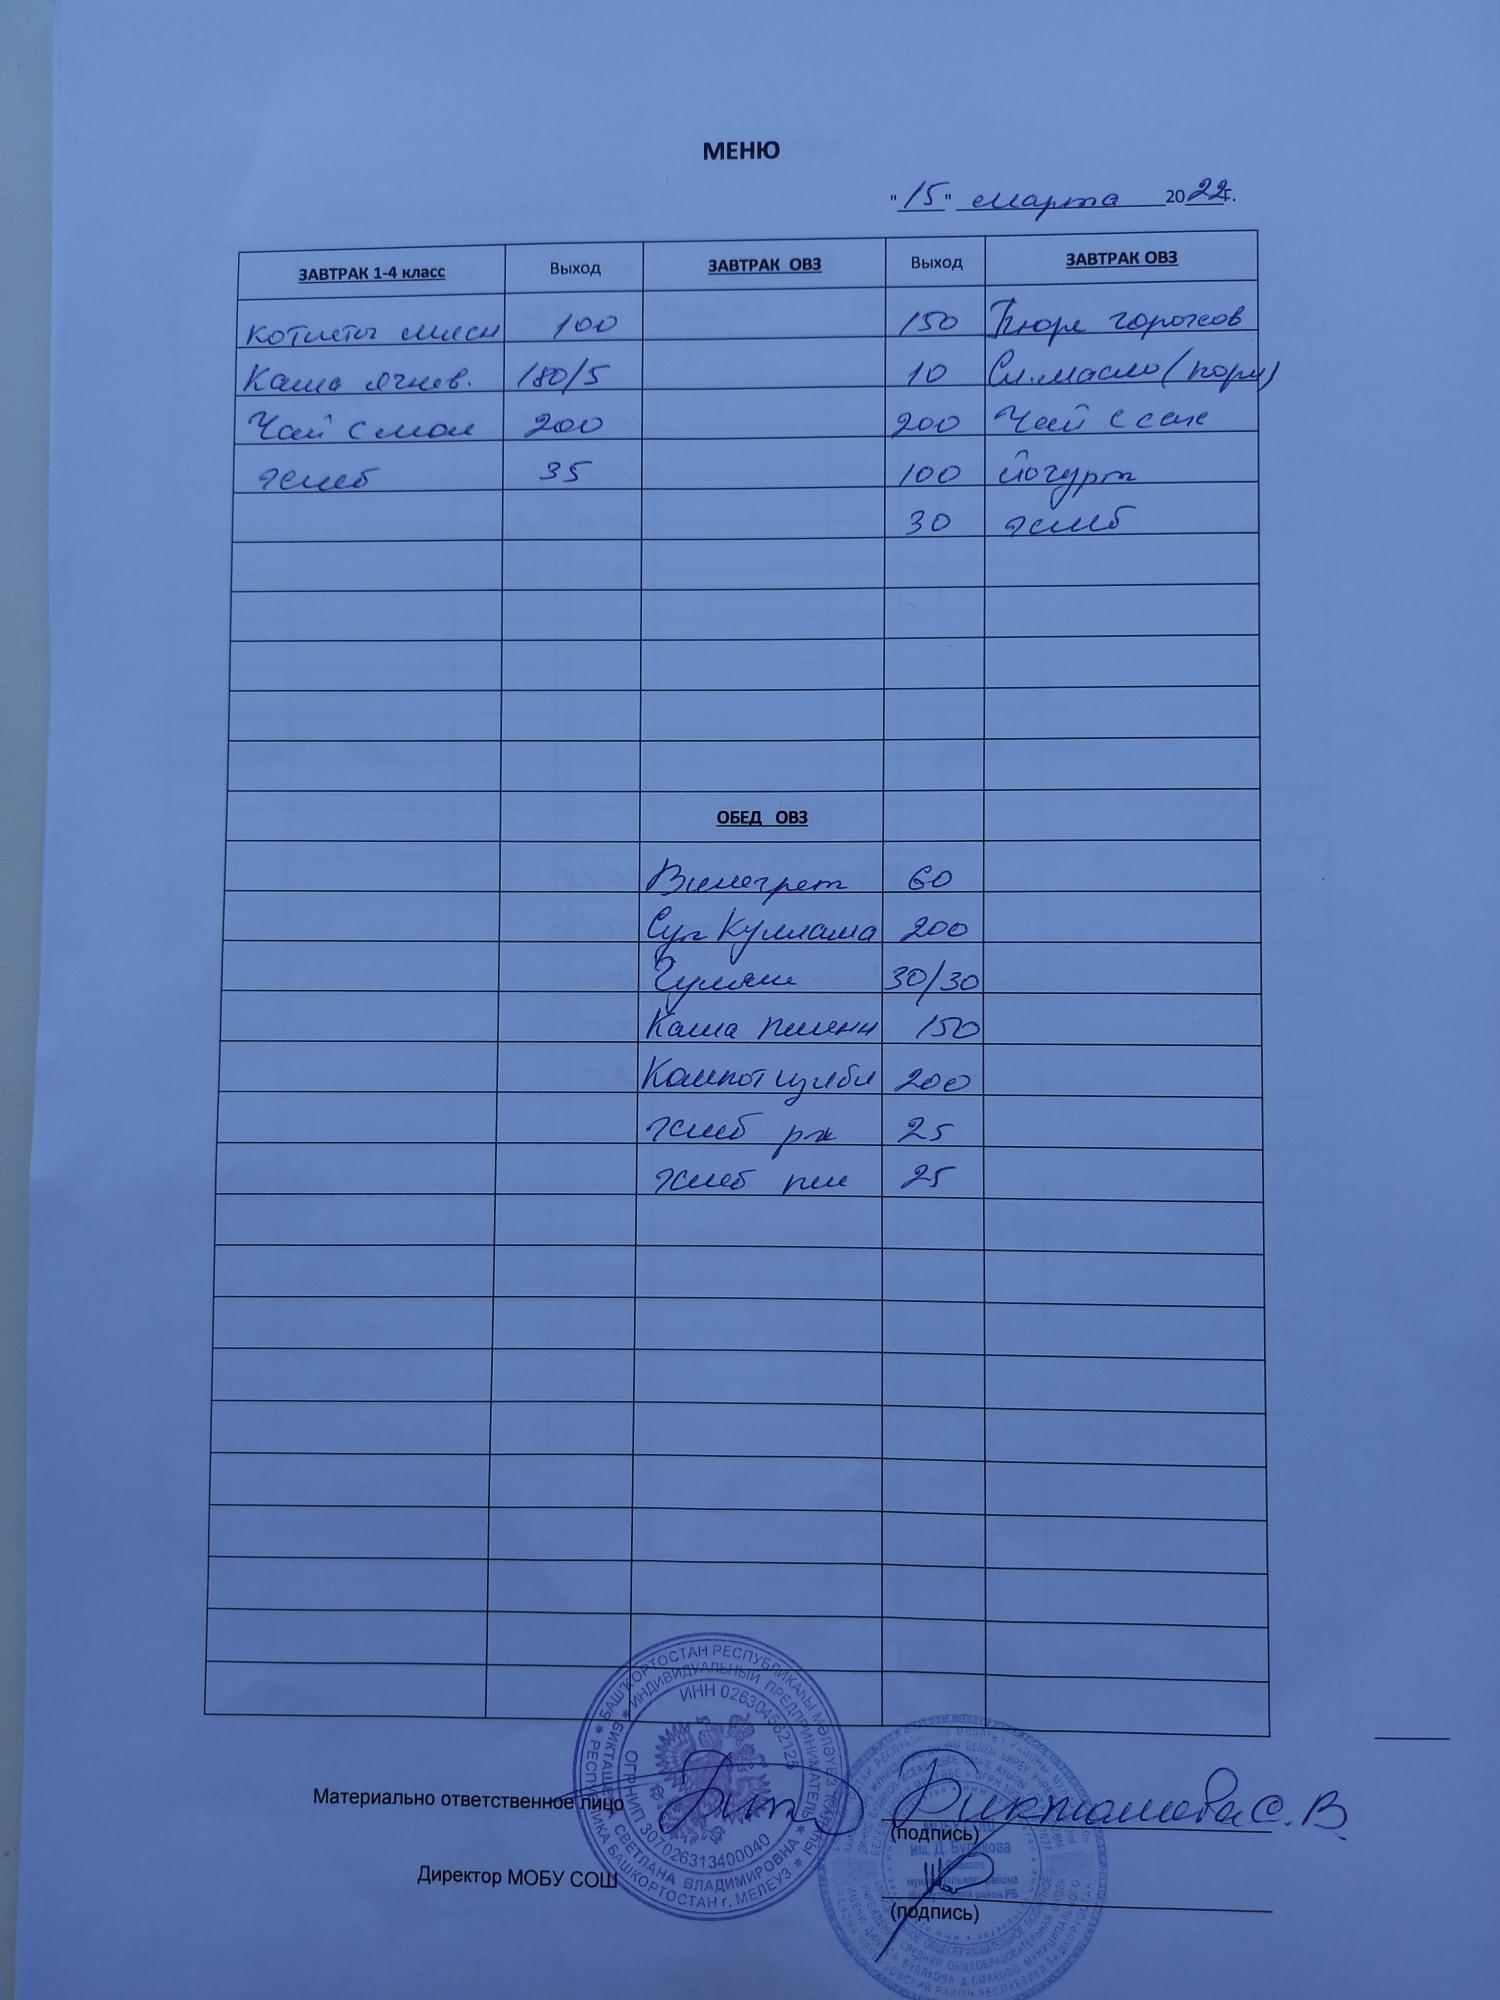 МЕНЮ
"15" марта 2022г.
ЗАВТРАК 1-4 класс Выход ЗАВТРАК ОВЗ Выход ЗАВТРАК ОВЗ
Котлеты мясн 100 150 Пюре горохов
Каша ячнев. 180/5 10 Сл.масло (порц)
Чай с мол 200 200 Чай с сах
хлеб 35 100 йогурт
30 хлеб
ОБЕД ОВЗ
Винегрет 60
Суп Куллама 200
Гуляш 30/30
Каша пшенн 150
Компот из ябл 200
хлеб рж 25
хлеб пш 25
Материально ответственное лицо Бикташева С. В.
(подпись)
Директор МОБУ СОШ
(подпись)
БАШҠОРТОСТАН РЕСПУБЛИКАҺЫ МӘЛӘҮЕЗ ҠАЛАҺЫ
РЕСПУБЛИКА БАШКОРТОСТАН г. МЕЛЕУЗ
ИНДИВИДУАЛЬНЫЙ ПРЕДПРИНИМАТЕЛЬ
БИКТАШЕВА СВЕТЛАНА ВЛАДИМИРОВНА
ИНН 026304562125
ОГРНИП 307026313400040
МОБУ СОШ
им. Д. Булякова